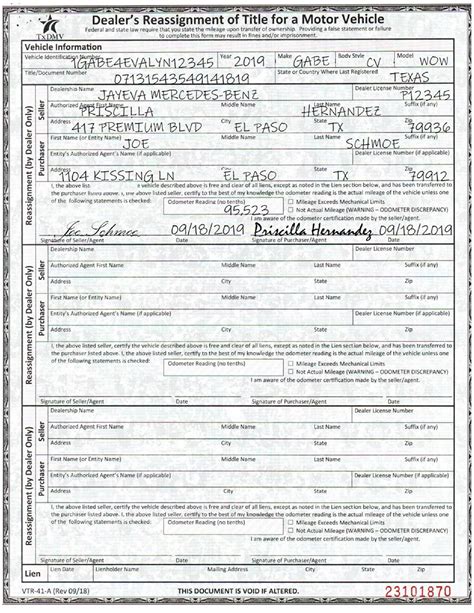 TxDMV
Dealer's Reassignment of Title for a Motor Vehicle
Federal and state law require that you state the mileage upon transfer of ownership. Providing a false statement or failure
to complete this form may result in fines and/or imprisonment.
Vehicle Information
Vehicle Identification Number Year Make Body Style Model
1GABE4EVALYN12345 2019 GABE CV WOW
Title/Document Number State or Country Where Last Registered
07131543549141819 TEXAS
Reassignment (by Dealer Only)
Seller
Dealership Name Dealer License Number
JAYEVA MERCEDES-BENZ P12345
Authorized Agent First Name Middle Name Last Name Suffix (if any)
PRISCILLA HERNANDEZ
Address City State Zip
417 PREMIUM BLVD EL PASO TX 79936
Purchaser
First Name (or Entity Name) Middle Name Last Name Suffix (if any)
JOE SCHMOE
Entity's Authorized Agent's Name (if applicable) Dealer License Number (if applicable)
Address City State Zip
1104 KISSING LN EL PASO TX 79912
I, the above listed seller, certify the vehicle described above is free and clear of all liens, except as noted in the Lien section below, and has been transferred to
the purchaser listed above. I also certify, to the best of my knowledge the odometer reading is the actual mileage of the vehicle unless
one of the following statements is checked:
Odometer Reading (no tenths)
95,523
Mileage Exceeds Mechanical Limits
Not Actual Mileage (WARNING – ODOMETER DISCREPANCY)
I am aware of the odometer certification made by the seller/agent.
Joe Schmoe 09/18/2019 Priscilla Hernandez 09/18/2019
Signature of Seller/Agent Date Signature of Purchaser/Agent Date
Reassignment (by Dealer Only)
Seller
Dealership Name Dealer License Number
Authorized Agent First Name Middle Name Last Name Suffix (if any)
Address City State Zip
Purchaser
First Name (or Entity Name) Middle Name Last Name Suffix (if any)
Entity's Authorized Agent's Name (if applicable) Dealer License Number (if applicable)
Address City State Zip
I, the above listed seller, certify the vehicle described above is free and clear of all liens, except as noted in the Lien section below, and has been transferred to
the purchaser listed above. I also certify, to the best of my knowledge the odometer reading is the actual mileage of the vehicle unless
one of the following statements is checked:
Odometer Reading (no tenths)
Mileage Exceeds Mechanical Limits
Not Actual Mileage (WARNING – ODOMETER DISCREPANCY)
I am aware of the odometer certification made by the seller/agent.
Signature of Seller/Agent Date Signature of Purchaser/Agent Date
Reassignment (by Dealer Only)
Seller
Dealership Name Dealer License Number
Authorized Agent First Name Middle Name Last Name Suffix (if any)
Address City State Zip
Purchaser
First Name (or Entity Name) Middle Name Last Name Suffix (if any)
Entity's Authorized Agent's Name (if applicable) Dealer License Number (if applicable)
Address City State Zip
I, the above listed seller, certify the vehicle described above is free and clear of all liens, except as noted in the Lien section below, and has been transferred to
the purchaser listed above. I also certify, to the best of my knowledge the odometer reading is the actual mileage of the vehicle unless
one of the following statements is checked:
Odometer Reading (no tenths)
Mileage Exceeds Mechanical Limits
Not Actual Mileage (WARNING – ODOMETER DISCREPANCY)
I am aware of the odometer certification made by the seller/agent.
Signature of Seller/Agent Date Signature of Purchaser/Agent Date
Lien
Lien Date Lienholder Name Lienholder Mailing Address City State Zip
VTR-41-A (Rev 09/18) THIS DOCUMENT IS VOID IF ALTERED. 23101870